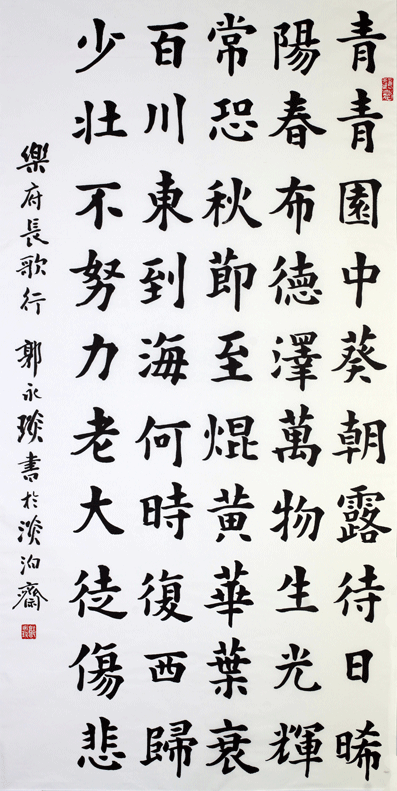 青青園中葵朝露待日晞
陽春布德澤萬物生光輝
常恐秋節至焜黃華葉衰
百川東到海何時復西歸
少壯不努力老大徒傷悲
樂府長歌行 郭永琰書於淡泊齋